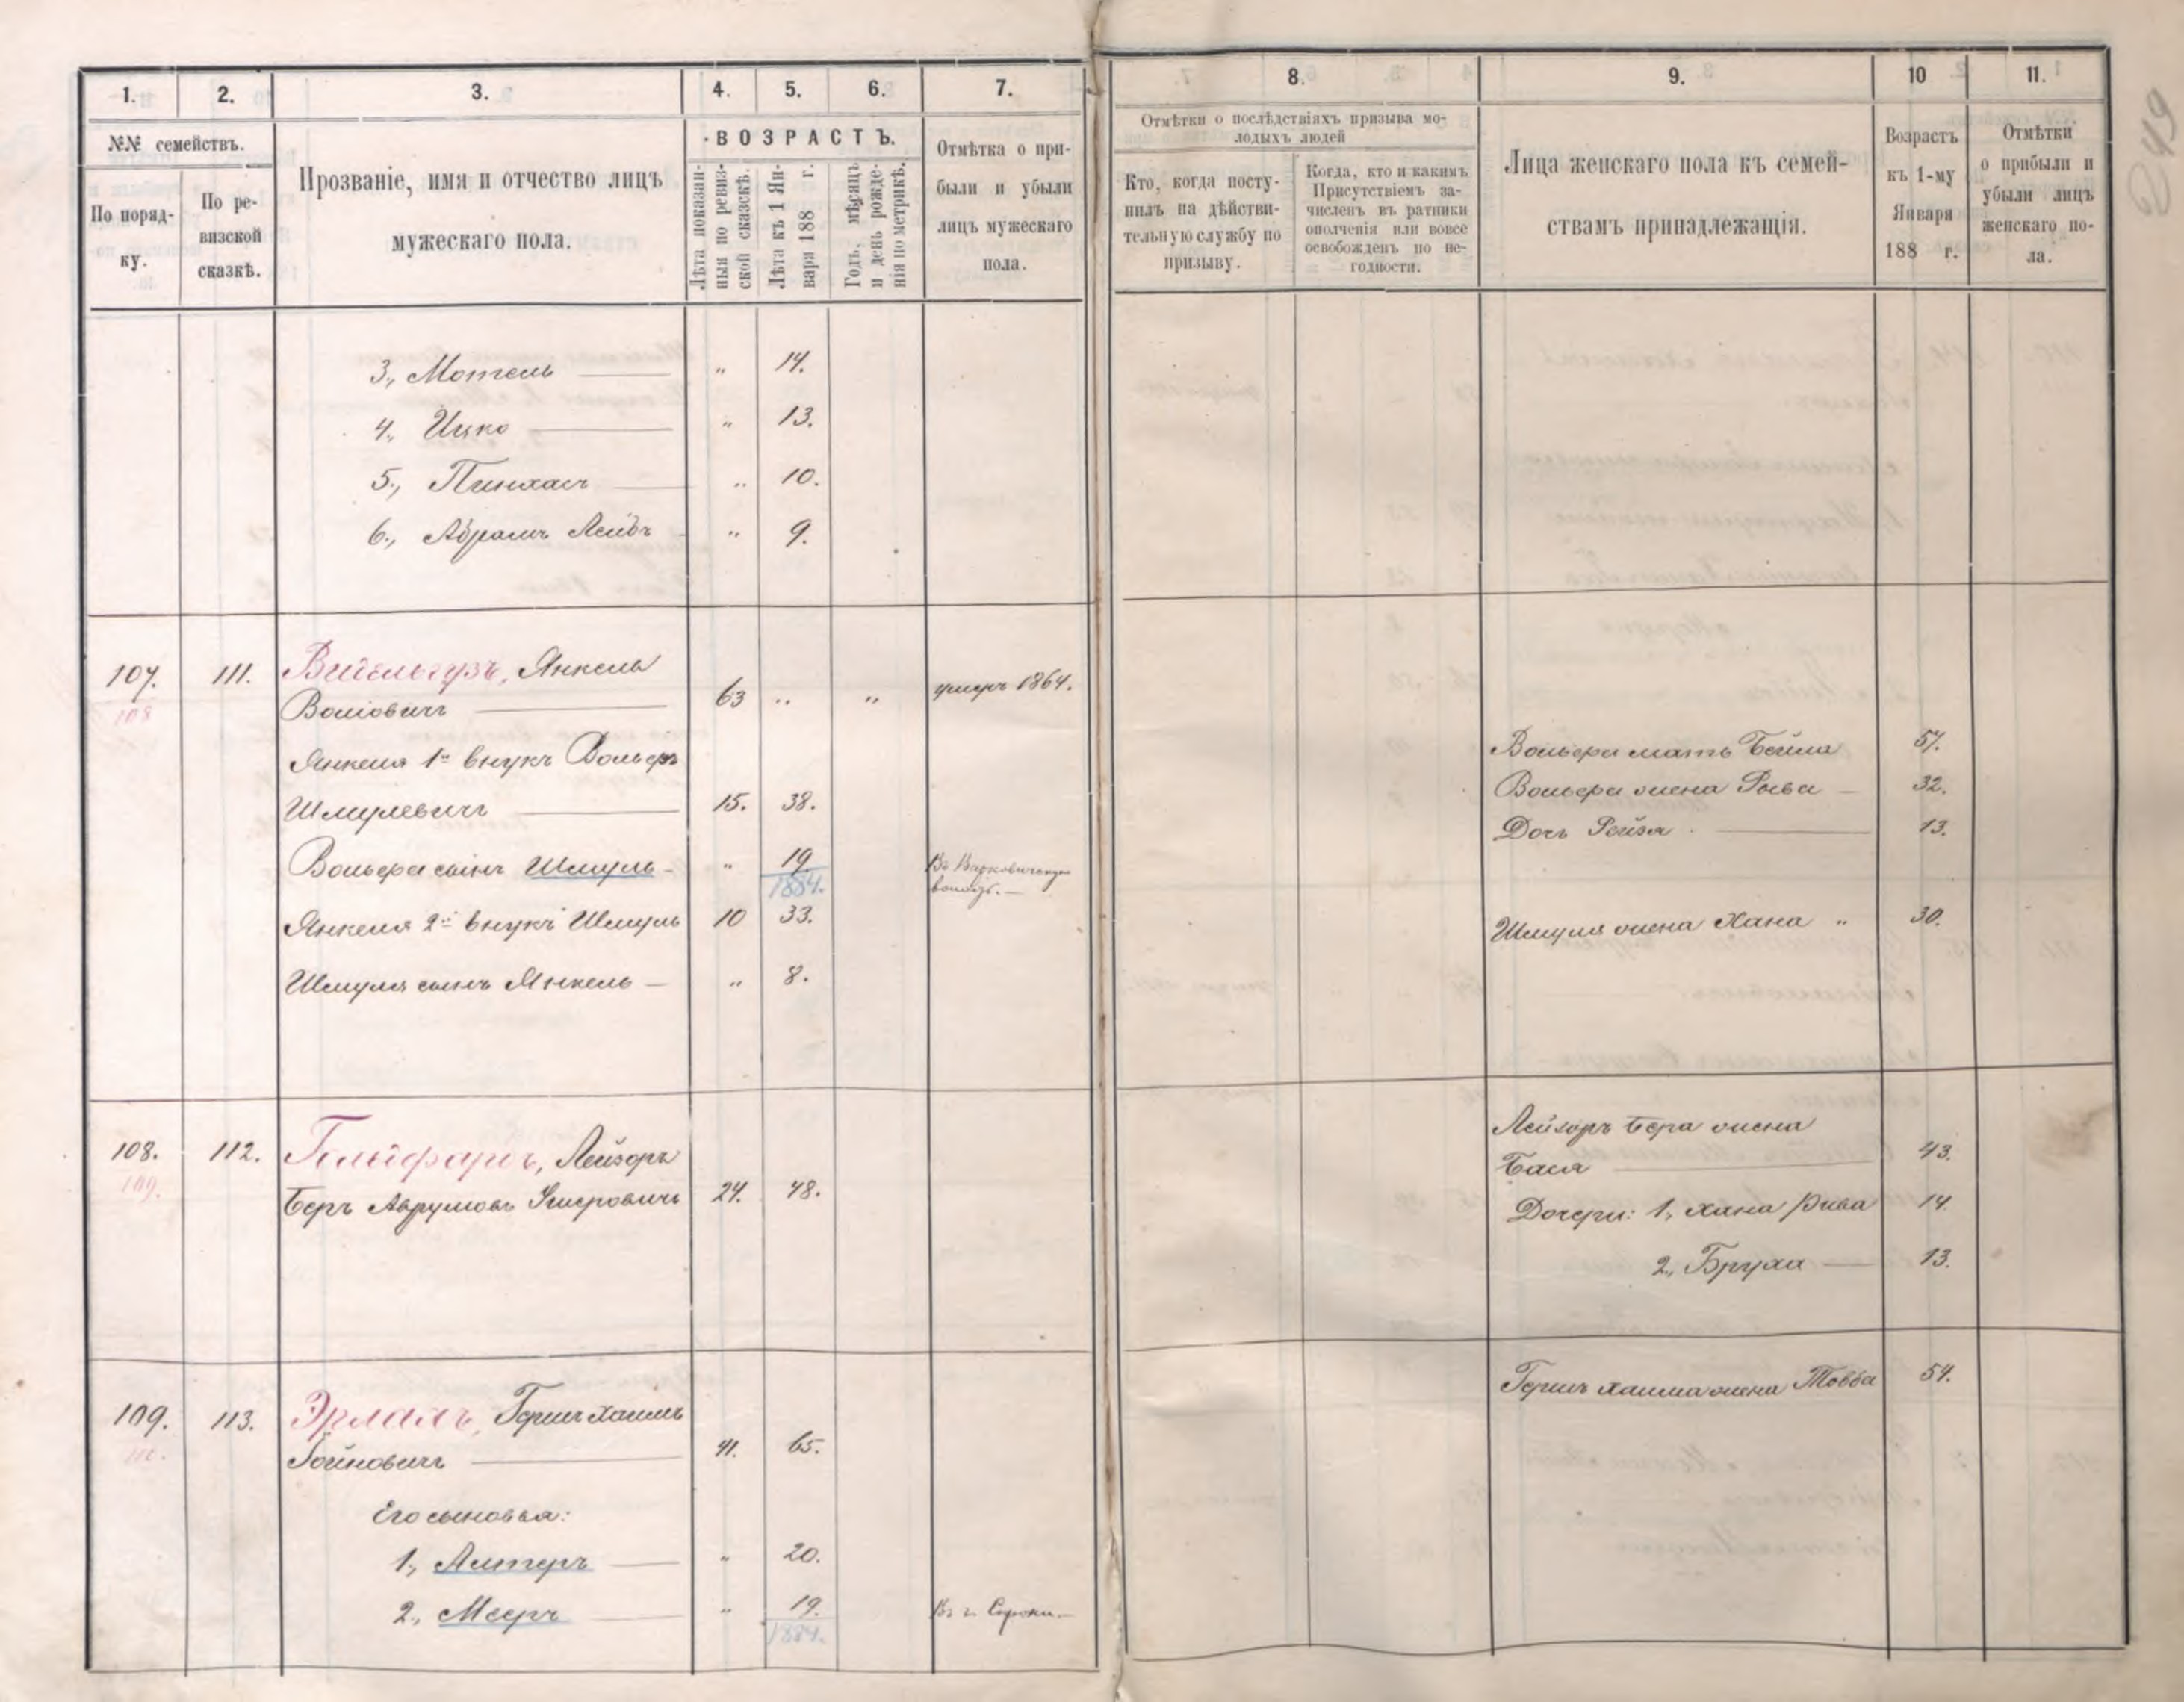 1.
2.
3.
4.
5.
6.
7.
8.
9.
10
11.
№№ семействъ.
По поряд-
ку.
По ре-
визской
сказкѣ.
Прозваніе, имя и отчество лицъ
мужескаго пола.
ВОЗРАСТЪ.
Лѣта показан-
ныя по ревиз-
ской сказскѣ.
Лѣта къ 1 Ян-
варя 188 г.
Годъ, мѣсяцъ
и день рожде-
нія по метрикѣ.
Отмѣтка о при-
были и убыли
лицъ мужескаго
пола.
Отмѣтки о послѣдствіяхъ призыва мо-
лодыхъ людей
Кто, когда посту-
пилъ на дѣйстви-
тельную службу по
призыву.
Когда, кто и какимъ
Присутствіемъ за-
численъ въ ратники
ополченія или вовсе
освобожденъ по не-
годности.
Лица женскаго пола къ семей-
ствамъ принадлежащія.
Возрастъ
къ 1-му
Января
188 г.
Отмѣтки
о прибыли и
убыли лицъ
женскаго по-
ла.
3., Мотель " 14.
4., Ицко " 13.
5., Пинхасъ " 10.
6., Абрамъ Лейбъ " 9.
107. 111. Янкель
108
Воліовичъ 63 " " умеръ 1864.
Янкеля 1й внукъ Вольфъ
Шмулевичъ 15. 38.
Вольфа сынъ Шмуль " 19
1884.
Янкеля 2й внукъ Шмуль 10 33.
Шмуля сынъ Янкель " 8.
Вольфа мать Бейла 57.
Вольфа жена Рыва 32.
Дочь Рейзя 13.
Шмуля жена Хана " 30.
108. 112. Лейзоръ
109.
Беръ Аврумовъ 24. 48.
Лейзоръ Бера жена
Бася 43.
Дочери: 1, Хана Рива 14.
2, Бруха 13.
109. 113. Эрлахъ, Гершъ Хаимъ
110.
41. 65.
Его сыновья:
1., Алтеръ " 20.
2., Мееръ " 19. Въ г. Сороки.
1884.
Гершъ Хаима жена Товба 54.